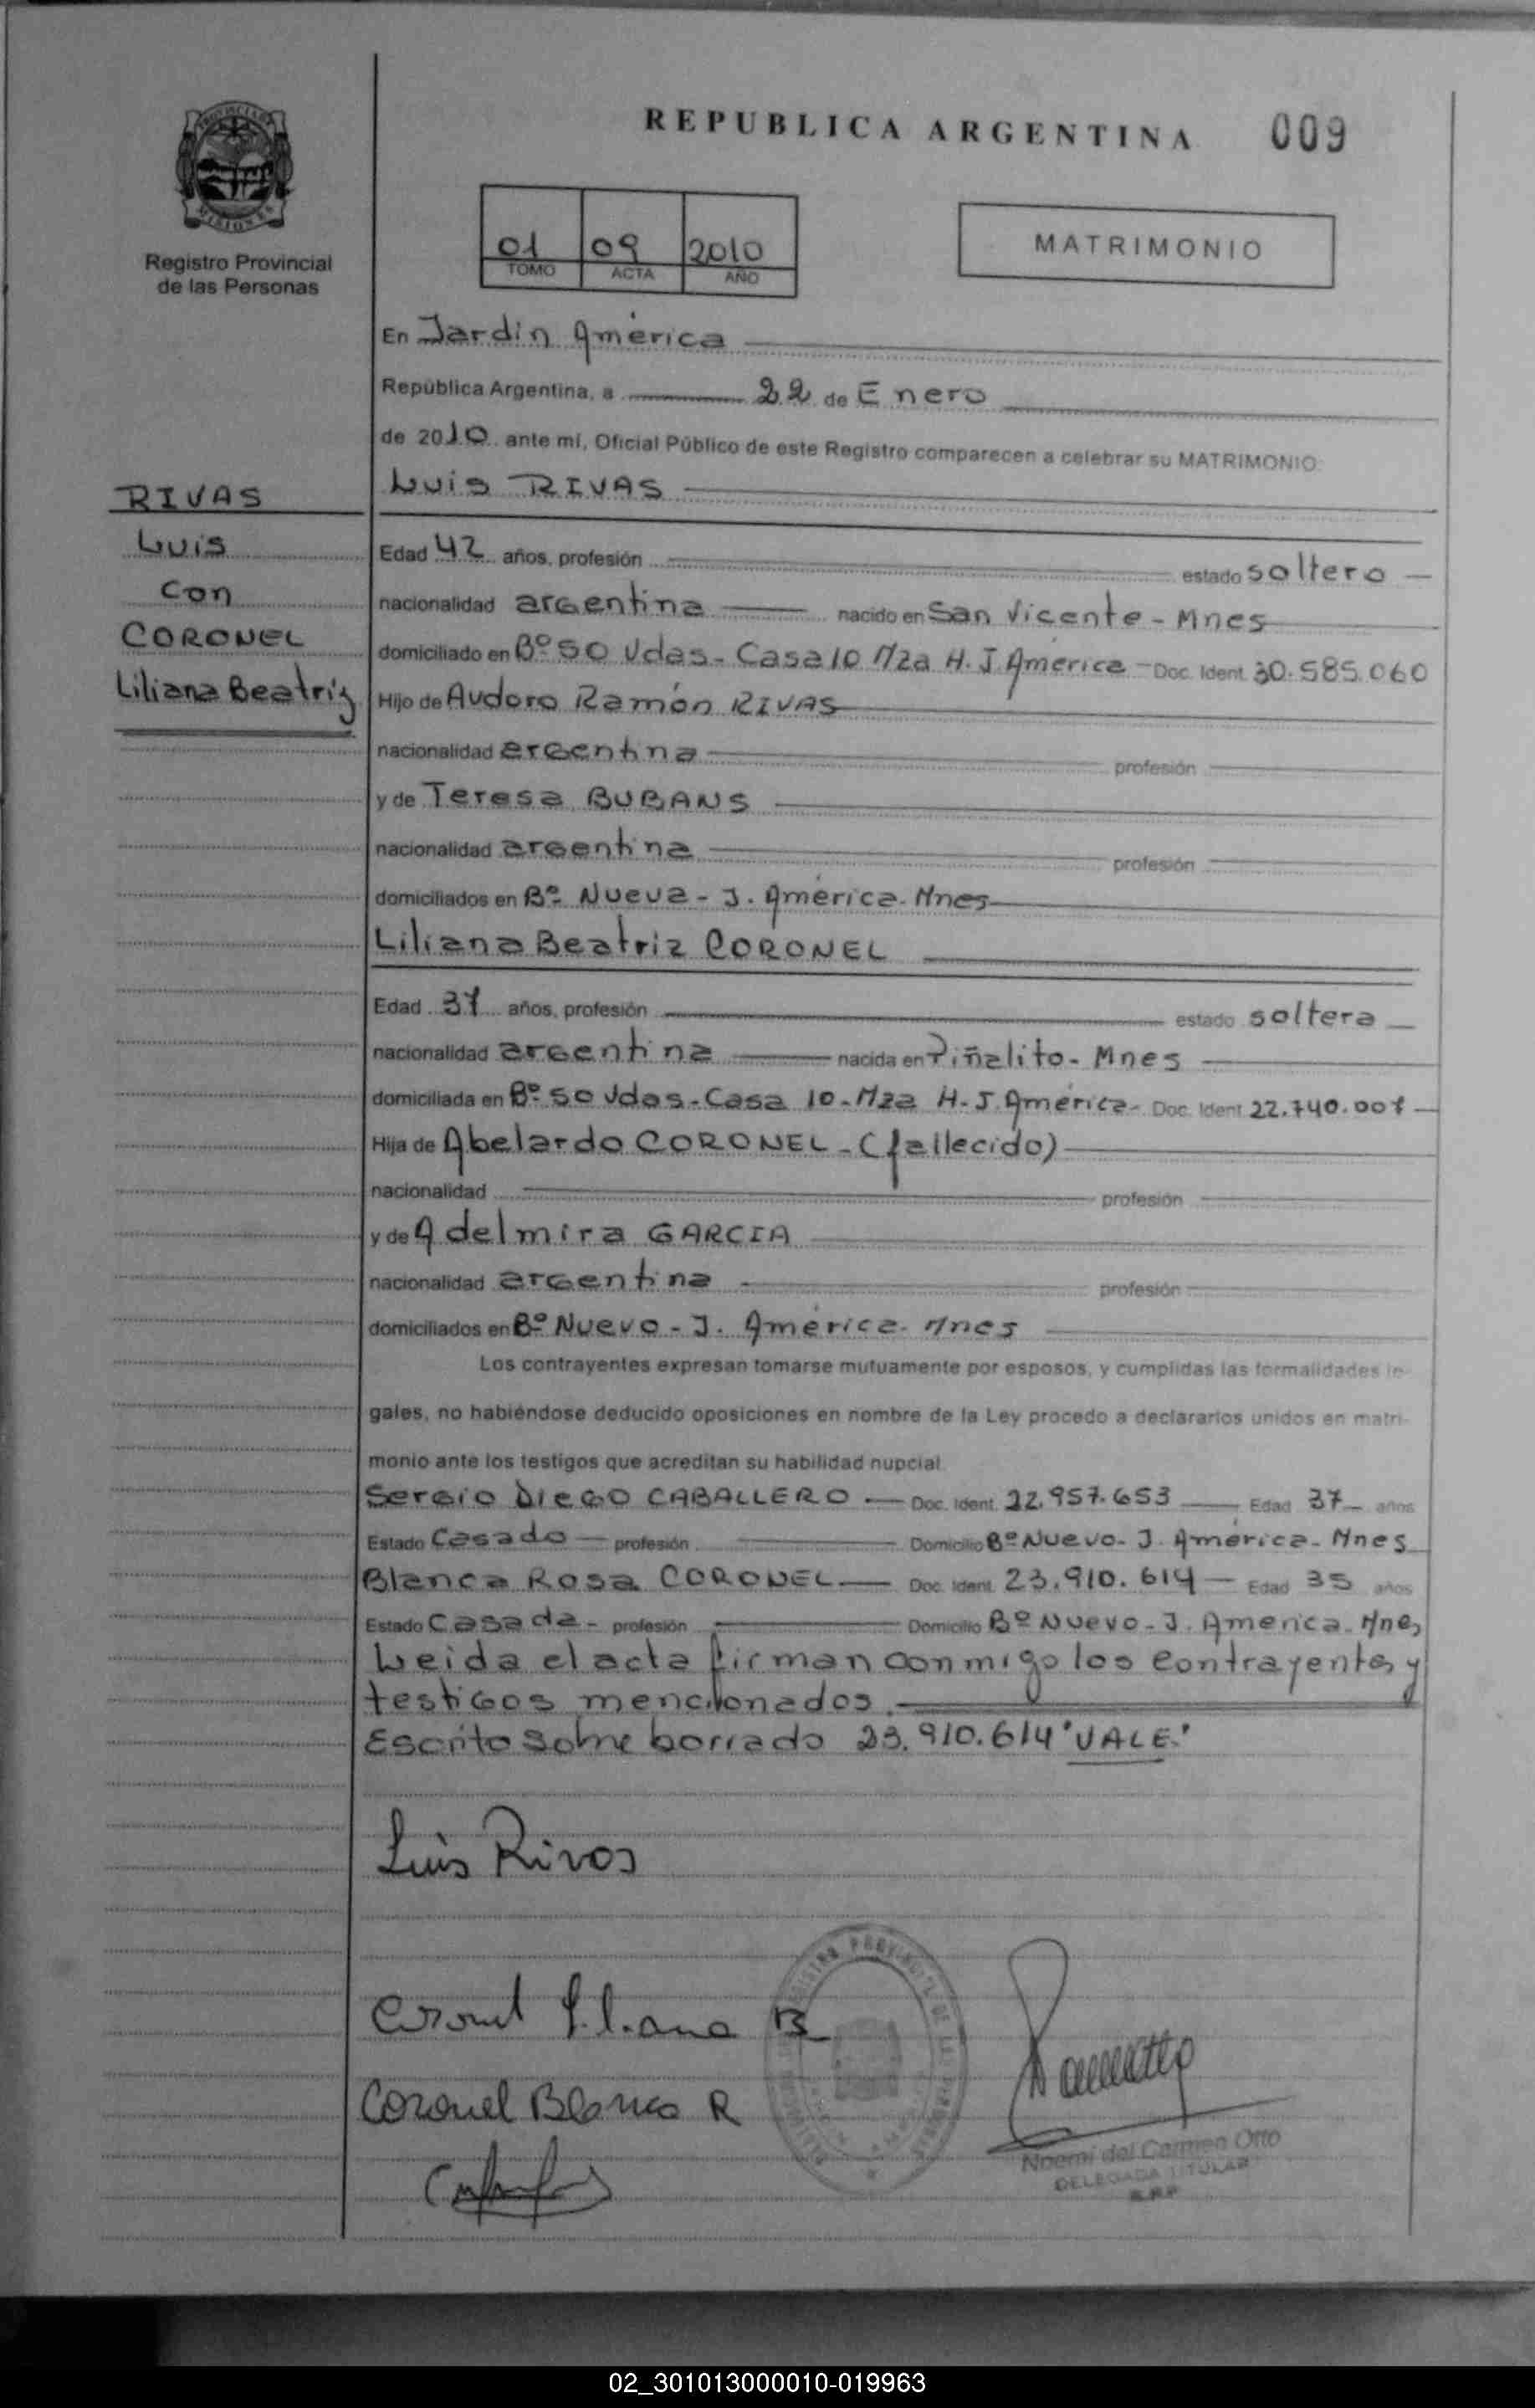 REPUBLICA ARGENTINA 009
PROVINCIA DE MISIONES
Registro Provincial
de las Personas
01 09 2010
TOMO ACTA AÑO
MATRIMONIO
En Jardin América
República Argentina, a 22 de Enero
de 2010 ante mí, Oficial Público de este Registro comparecen a celebrar su MATRIMONIO:
Luis RIVAS
RIVAS
Luis
Con
CORONEL
Liliana Beatriz
Edad 42 años, profesión estado soltero
nacionalidad argentina nacido en San Vicente - Mnes
domiciliado en Bº 50 Vdas - Casa 10 Mza H. J. América - Doc. Ident. 30.585.060
Hijo de Audoro Ramón RIVAS
nacionalidad argentina profesión
y de Teresa BUBANS
nacionalidad argentina profesión
domiciliados en Bº Nueva - J. América - Mnes
Liliana Beatriz CORONEL
Edad 37 años, profesión estado soltera
nacionalidad argentina nacida en Piñalito - Mnes
domiciliada en Bº 50 Vdas - Casa 10 - Mza H - J. América - Doc. Ident. 22.740.007
Hija de Abelardo CORONEL - (fallecido)
nacionalidad profesión
y de Adelmira GARCIA
nacionalidad argentina profesión
domiciliados en Bº Nuevo - J. América - Mnes
Los contrayentes expresan tomarse mutuamente por esposos, y cumplidas las formalidades le-
gales, no habiéndose deducido oposiciones en nombre de la Ley procedo a declararlos unidos en matri-
monio ante los testigos que acreditan su habilidad nupcial.
Sergio Diego CABALLERO - Doc. Ident. 22.957.653 Edad 37 años
Estado Casado profesión Domicilio Bº Nuevo - J. América - Mnes
Blanca Rosa CORONEL Doc. Ident. 23.910.614 Edad 35 años
Estado Casada - profesión Domicilio Bº Nuevo - J. America - Mnes
Leida el acta firman conmigo los contrayentes y
testigos mencionados.
Escrito sobre borrado 23.910.614 "VALE."
Luis Rivas
Coronel Liliana B
Coronel Blanca R
Noemi del Carmen Otto
DELEGADA TITULAR
R.P.P
02_301013000010-019963